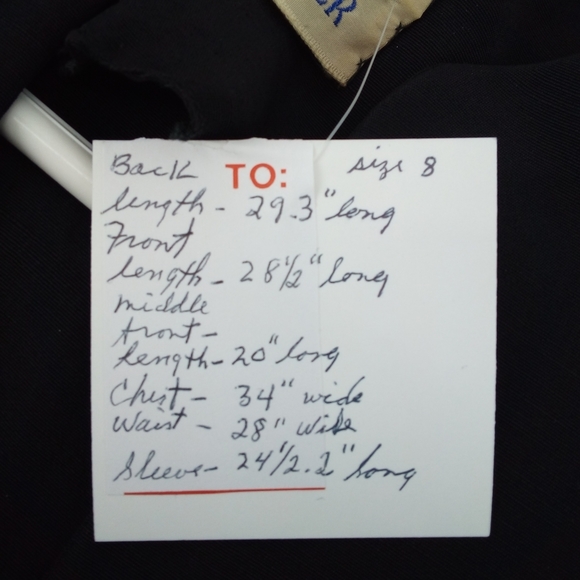 ER
Back TO: size 8
length - 29.3" long
Front
length - 28 1/2" long
middle
front -
length - 20" long
Chest - 34" wide
Waist - 28" wide
Sleeve - 24 1/2.2" long